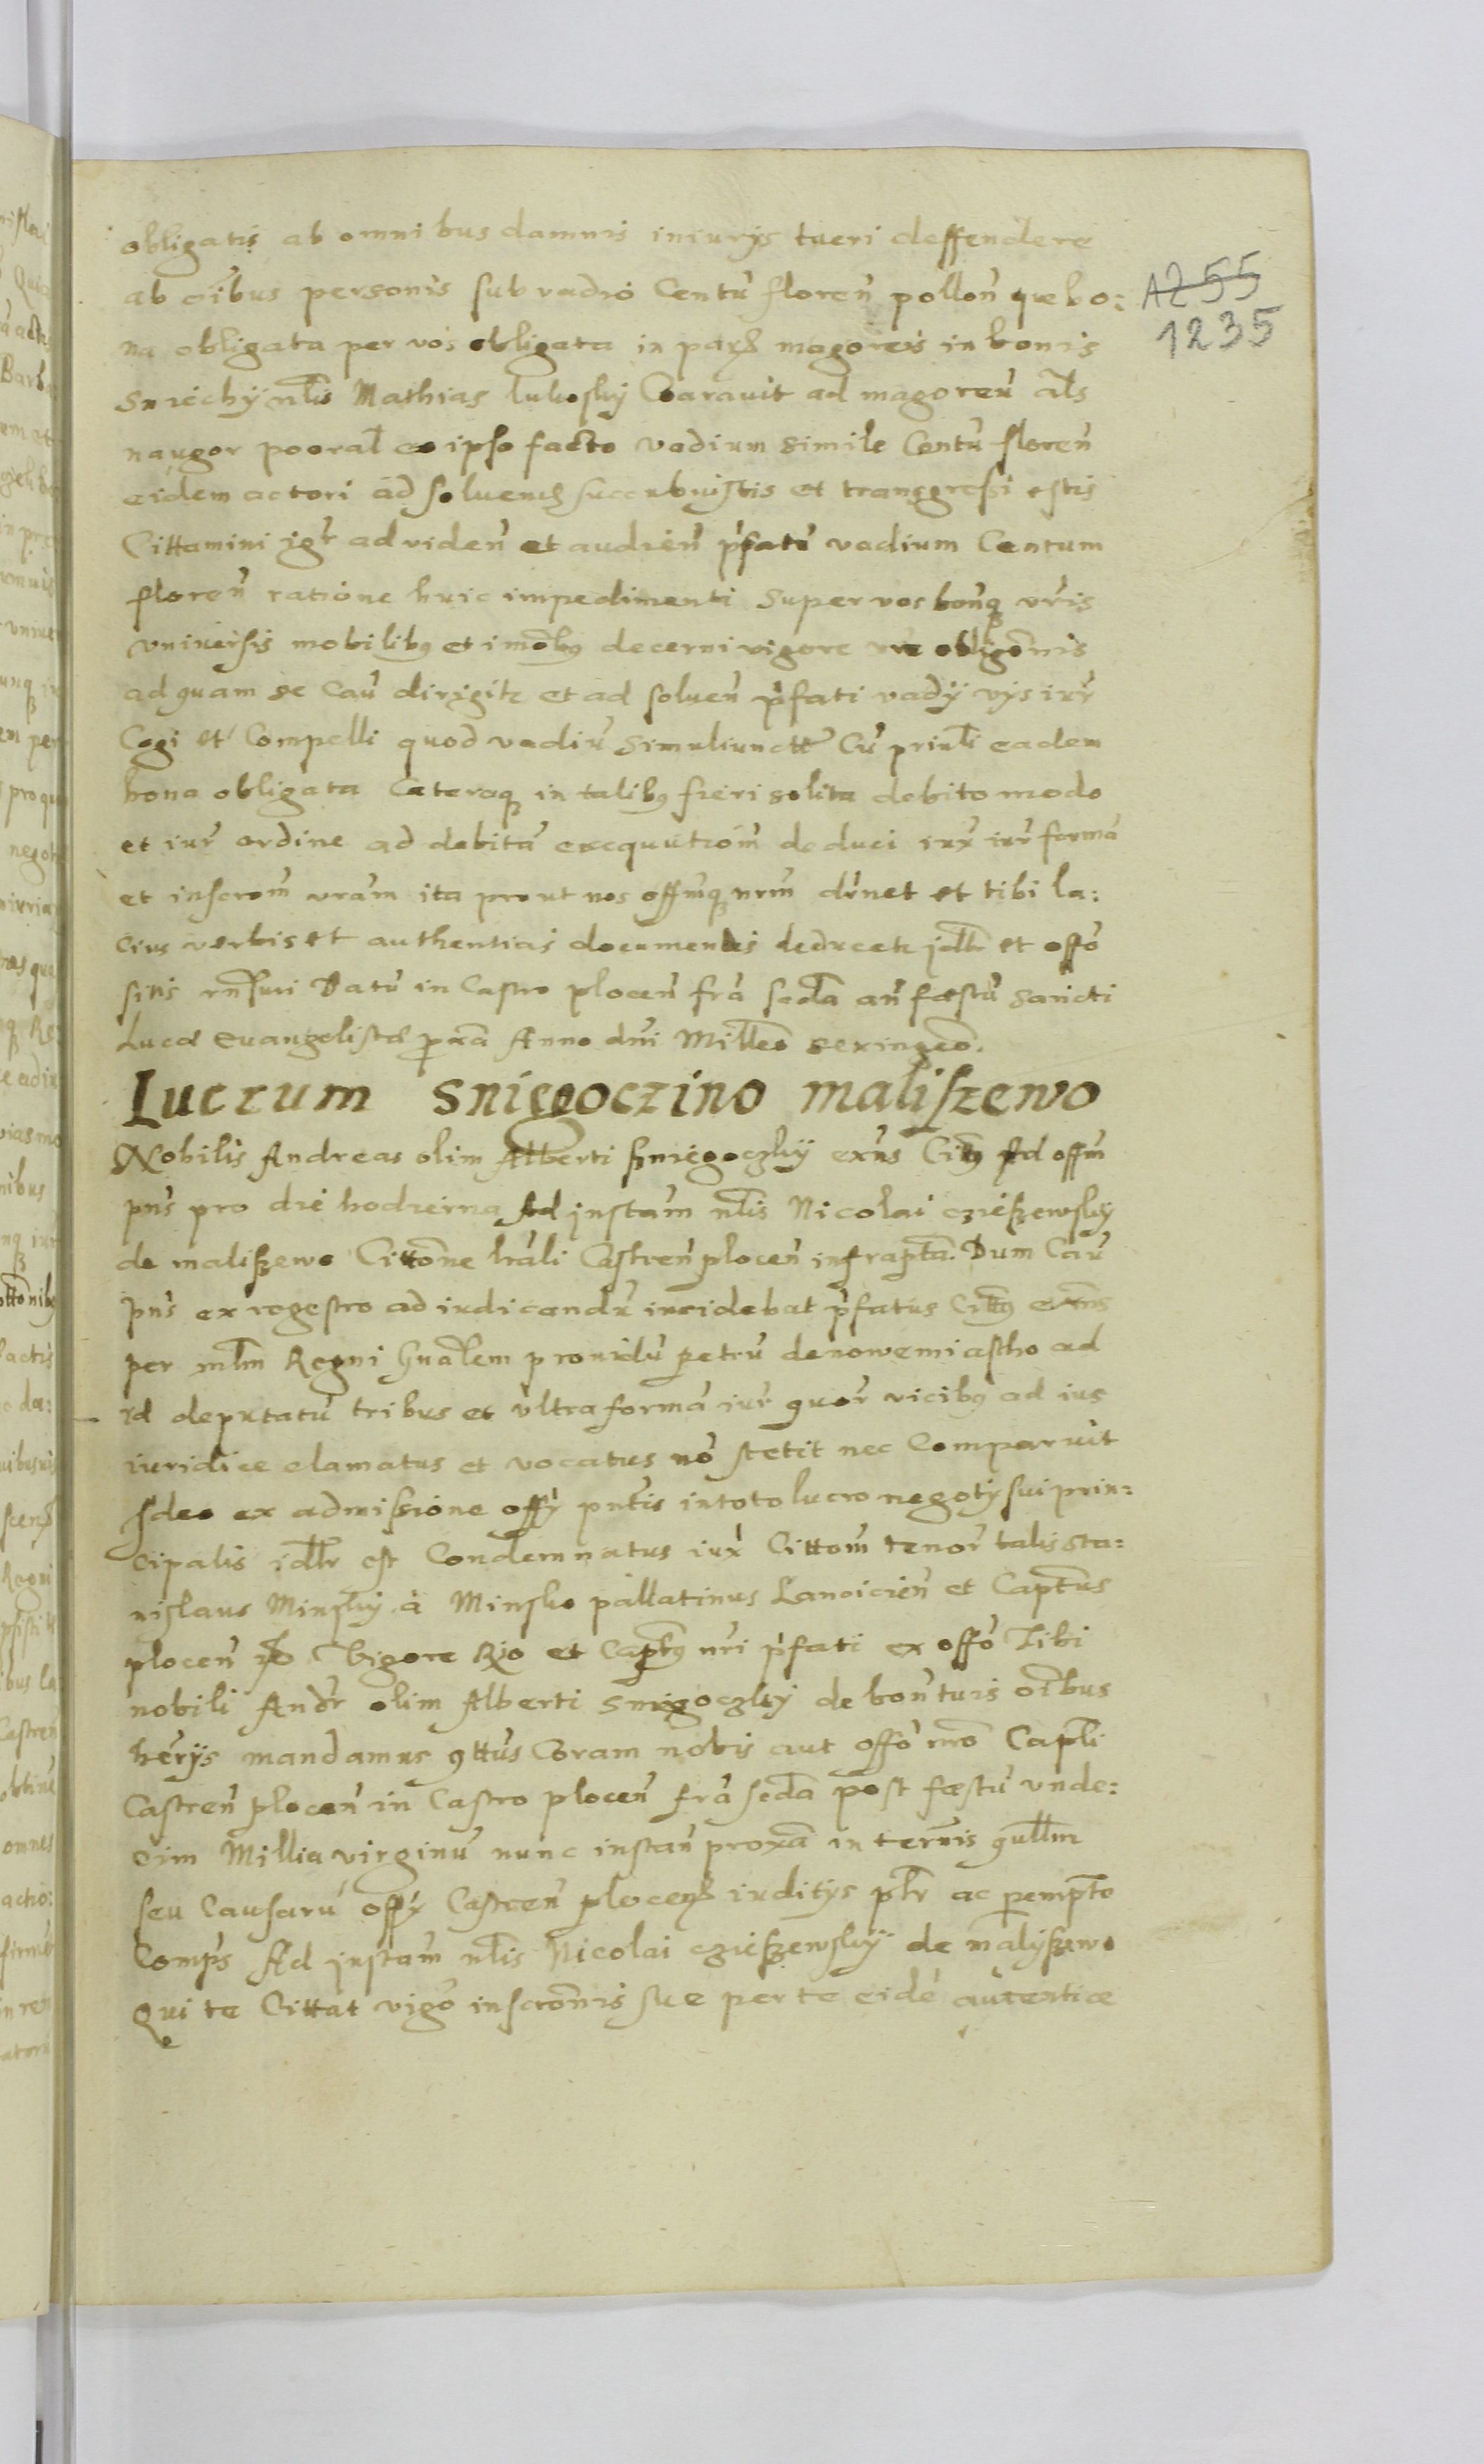 obligatis ab omnibus damnis iniurys tueri deffendere
ab oibus personis sub vadio Centū floren̄ pollon̄ que bo:
A255
1235
na obligata per vos obligata in magoreis in bonis
Sniechy nlis Mathias lukosky ad magoreū als
naugor pooral eo ipso facto vadium simile Centū floren̄
eidem actori ad soluend succubuistis et transgressi estis
Cittamini igr ad viden̄ et audien̄ pfatū vadium Centum
floren̄ ratione huic impedimenti super vos bonq vris
vniuersis mobilibq et imobq decerni vigore vre obligonis
ad quam se Caū dirigit et ad soluen̄ pfati vady vys iur
Cogi et Compelli quod vadiū simuliunctt Cū priuli eadem
bona obligata Ceteraq in talibq fieri solita debito modo
et iur ordine ad debitā exequutiom deduci iux iur formā
et inscrom vram ita prout nos offmq nrm et tibi la:
cius verbis et authenticis documentis idlr et offo
sitis Datū in Castro plocen̄ frā scda an̄ fæstū Sancti
Lucæ Euangelistæ pxā Anno dni Milleo
Lucrum Snigoczino maliszewo
Nobilis Andreas olim Alberti Szniegoczky exn̄s Citq Ad offm
pn̄s pro die hodierna Ad jnstam nlis Nicolai czieszewsky
de maliszewo Cittone lrali Castren̄ plocen̄ infrapta. Dum Caū
pn̄s ex regestro ad iudicandū incidebat pfatus Cittq exns
per mlm Regni Gnalem prouidū petrū de nowemiastho ad
id deputatū tribus et vltra formā iur quor vicibq ad ius
iuridice clamatus et vocatus nō stetit nec Comparuit
Ideo ex admissione offy pntis in toto lucro negoty sui prin:
cipalis idlr est Condemnatus iux Cittom tenor talis Sta:
nislaus Minsky à Minsko pallatinus Lancicien̄ et Captus
plocen̄ Vigore et Captq nri pfati ex offo Tibi
nobili Andr olim Alberti Snigoczky de bon̄ tuis oibus
herys mandamus qttus Coram nobis aut offo nro Captli
Castren̄ plocen̄ in Castro plocen̄ frā scda post fæstū vnde:
cim Millia virginū nunc instan̄ proxa in termis qullm
seu Causarū offy Castren̄ plocen iuditys ptr ac perempto
Comps Ad jnstam nlis Nicolai czieszewsky de malyszewo
Qui te Cittat vigo inscronnis suæ per te eidē autenticæ